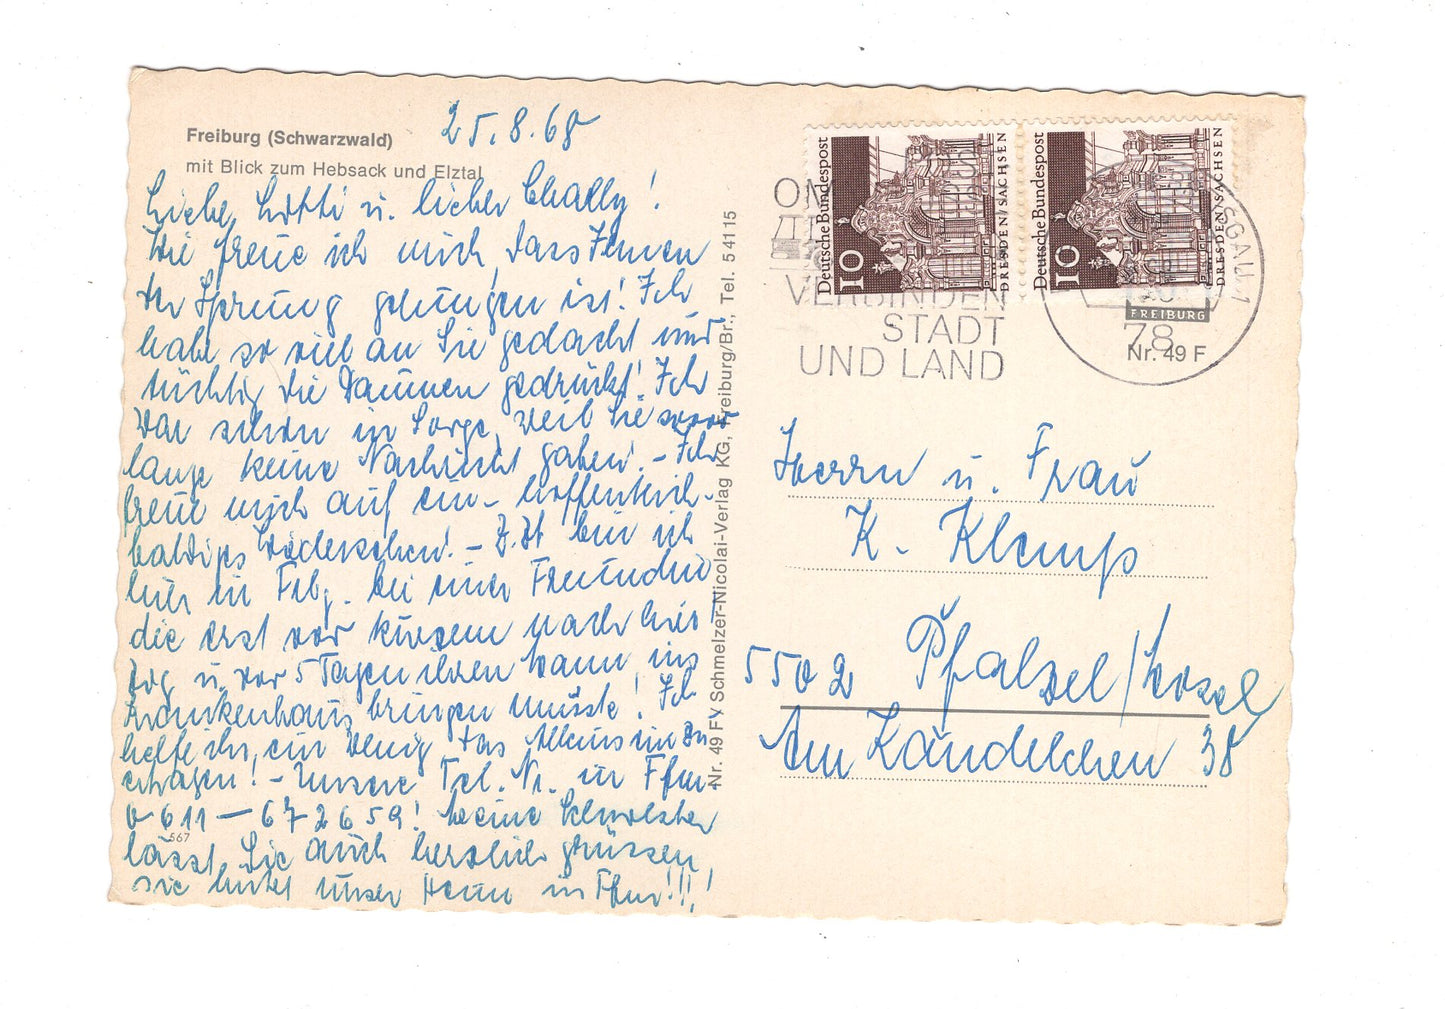 Freiburg (Schwarzwald)
mit Blick zum Hebsack und Elztal
25.8.68
Liebe Lotti u. lieber Charly!
Wie freue ich mich, dass Ihnen
der Sprung gelungen ist! Ich
habe so viel an Sie gedacht und
tüchtig die Daumen gedrückt! Ich
war schon in Sorge, weil Sie
lange keine Nachricht gaben. - Ich
freue mich auf ein - hoffentlich -
baldiges Wiedersehen. - Z.Zt bin ich
hier in Frbg. bei einer Freundin
die erst vor kurzem nach hier
zog u. vor 5 Tagen ihren Mann ins
Krankenhaus bringen musste! Ich
helfe ihr, ein wenig das Alleinsein zu
ertragen! - Unsere Tel. Nr. in Ffm.
0611 - 672659! Meine Schwester
lässt Sie auch herzlich grüssen,
sie hütet unser Heim in Ffm!!!!
567
Nr. 49 F Schmelzer-Nicolai-Verlag KG, Freiburg/Br., Tel. 5 41 15
Deutsche Bundespost
10
DRESDEN/SACHSEN
Deutsche Bundespost
10
DRESDEN/SACHSEN
VERBINDEN
STADT
UND LAND
FREIBURG
78
Nr. 49 F
Herrn u. Frau
K. Klemps
5502 Pfalzel/Mosel
Am Kändelchen 38